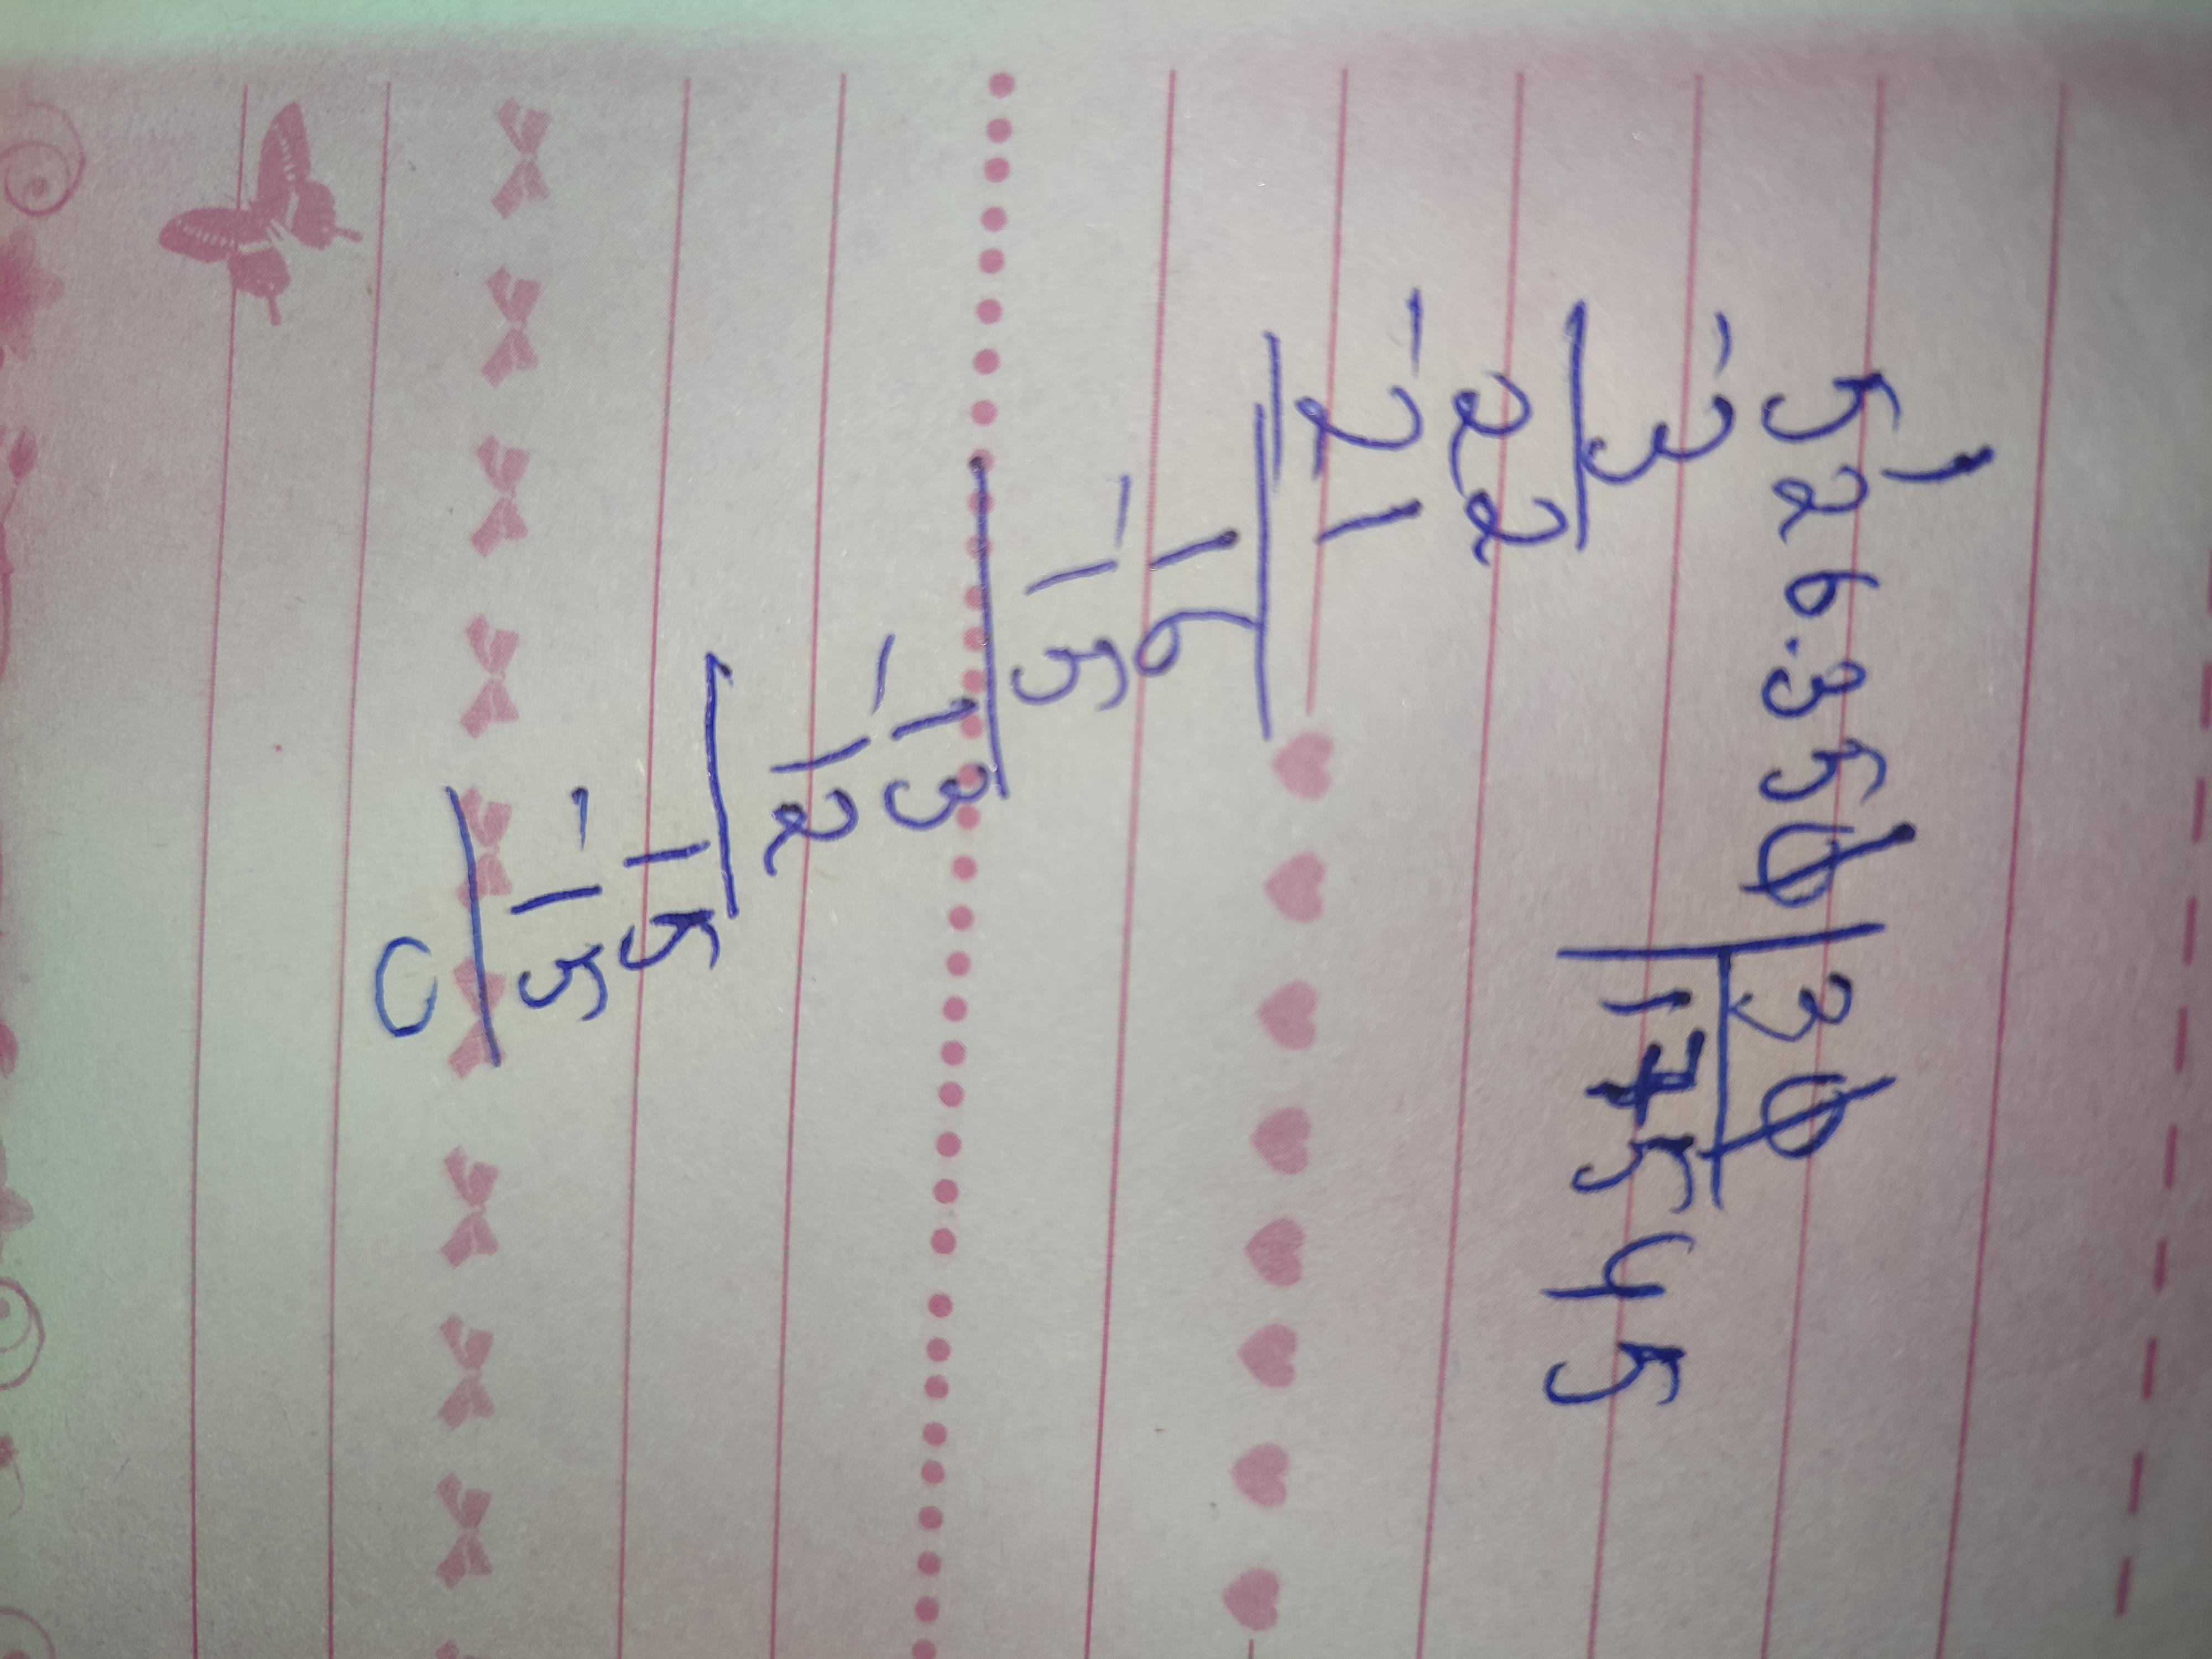 5'26.350 30
-3 17545
22
-21
16
-15
13
-12
15
-15
0